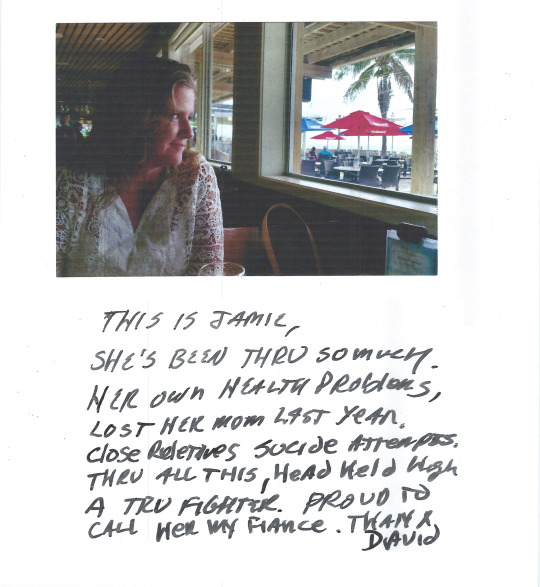 THIS IS JAMIE,
SHE'S BEEN THRU SO MUCH.
HER OWN HEALTH PROBLEMS,
LOST HER MOM LAST YEAR.
CLOSE RELETIVES SUCIDE ATTEMPTS.
THRU ALL THIS, HEAD HELD HIGH
A TRU FIGHTER. PROUD TO
CALL HER MY FIANCE. THANX
DAVID